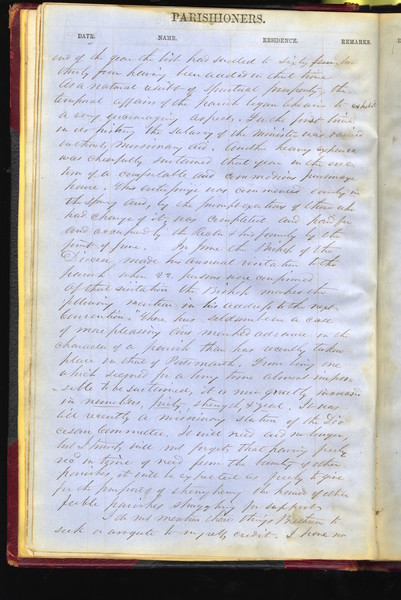 PARISHIONERS.
DATE. NAME. RESIDENCE. REMARKS.
end of the year the list had swelled to sixty four, 
thirty four having been added in that time
As a natural result of spiritual prosperity, the
temporal affairs of the Parish began again to exhibit
a very encouraging aspect. For the first time
in its history the salary of the minister was raised
without Missionary aid. Another heavy expense
was cheerfully sustained that year in the erec
tion of a comfortable and commodious parsonage
house. This enterprise was commenced early in
the Spring and, by the prompt exertions of those who
had charge of it, was completed and paid for
and occupied by the Rector & his family by the
first of June. In June the Bishop of the
Diocese made his annual visitation to the
parish when 22 persons were confirmed
Of this visitation the Bishop makes the
following mention in his address to the next
Convention. "There has seldom been a case
of more pleasing and marked advance in the
character of a parish than has recently taken
place in that of Pottsmouth. From being one
which seemed for a long time almost impos
sible to be sustained, it is now greatly increased
in numbers, purity, strength, & zeal. It was
till recently a missionary station of the Dio
cesan Committee. It will need aid no longer,
but I trust will not forget, that having freely
rec'd in time of need from the bounty of other
parishes, it will be expected as freely to give
for the purpose of strengthening the hands of other
feeble parishes struggling for support."
I do not mention these things Brethren to
seek or arrogate to myself credit. I have no